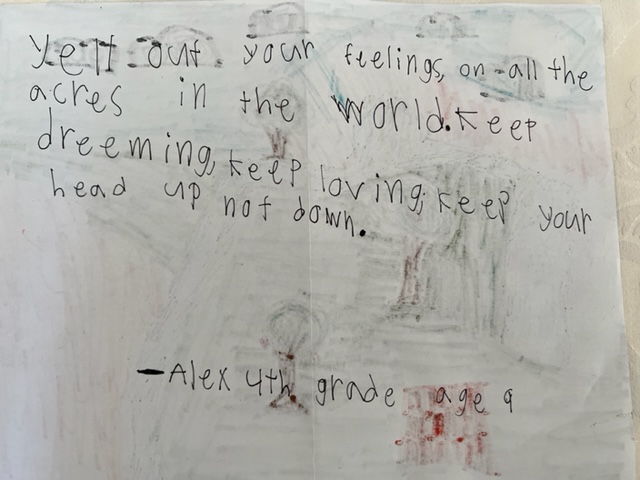 yell out your feelings, on all the
acres in the world. Keep
dreeming, keep loving, keep your
head up not down.
—Alex 4th grade age 9